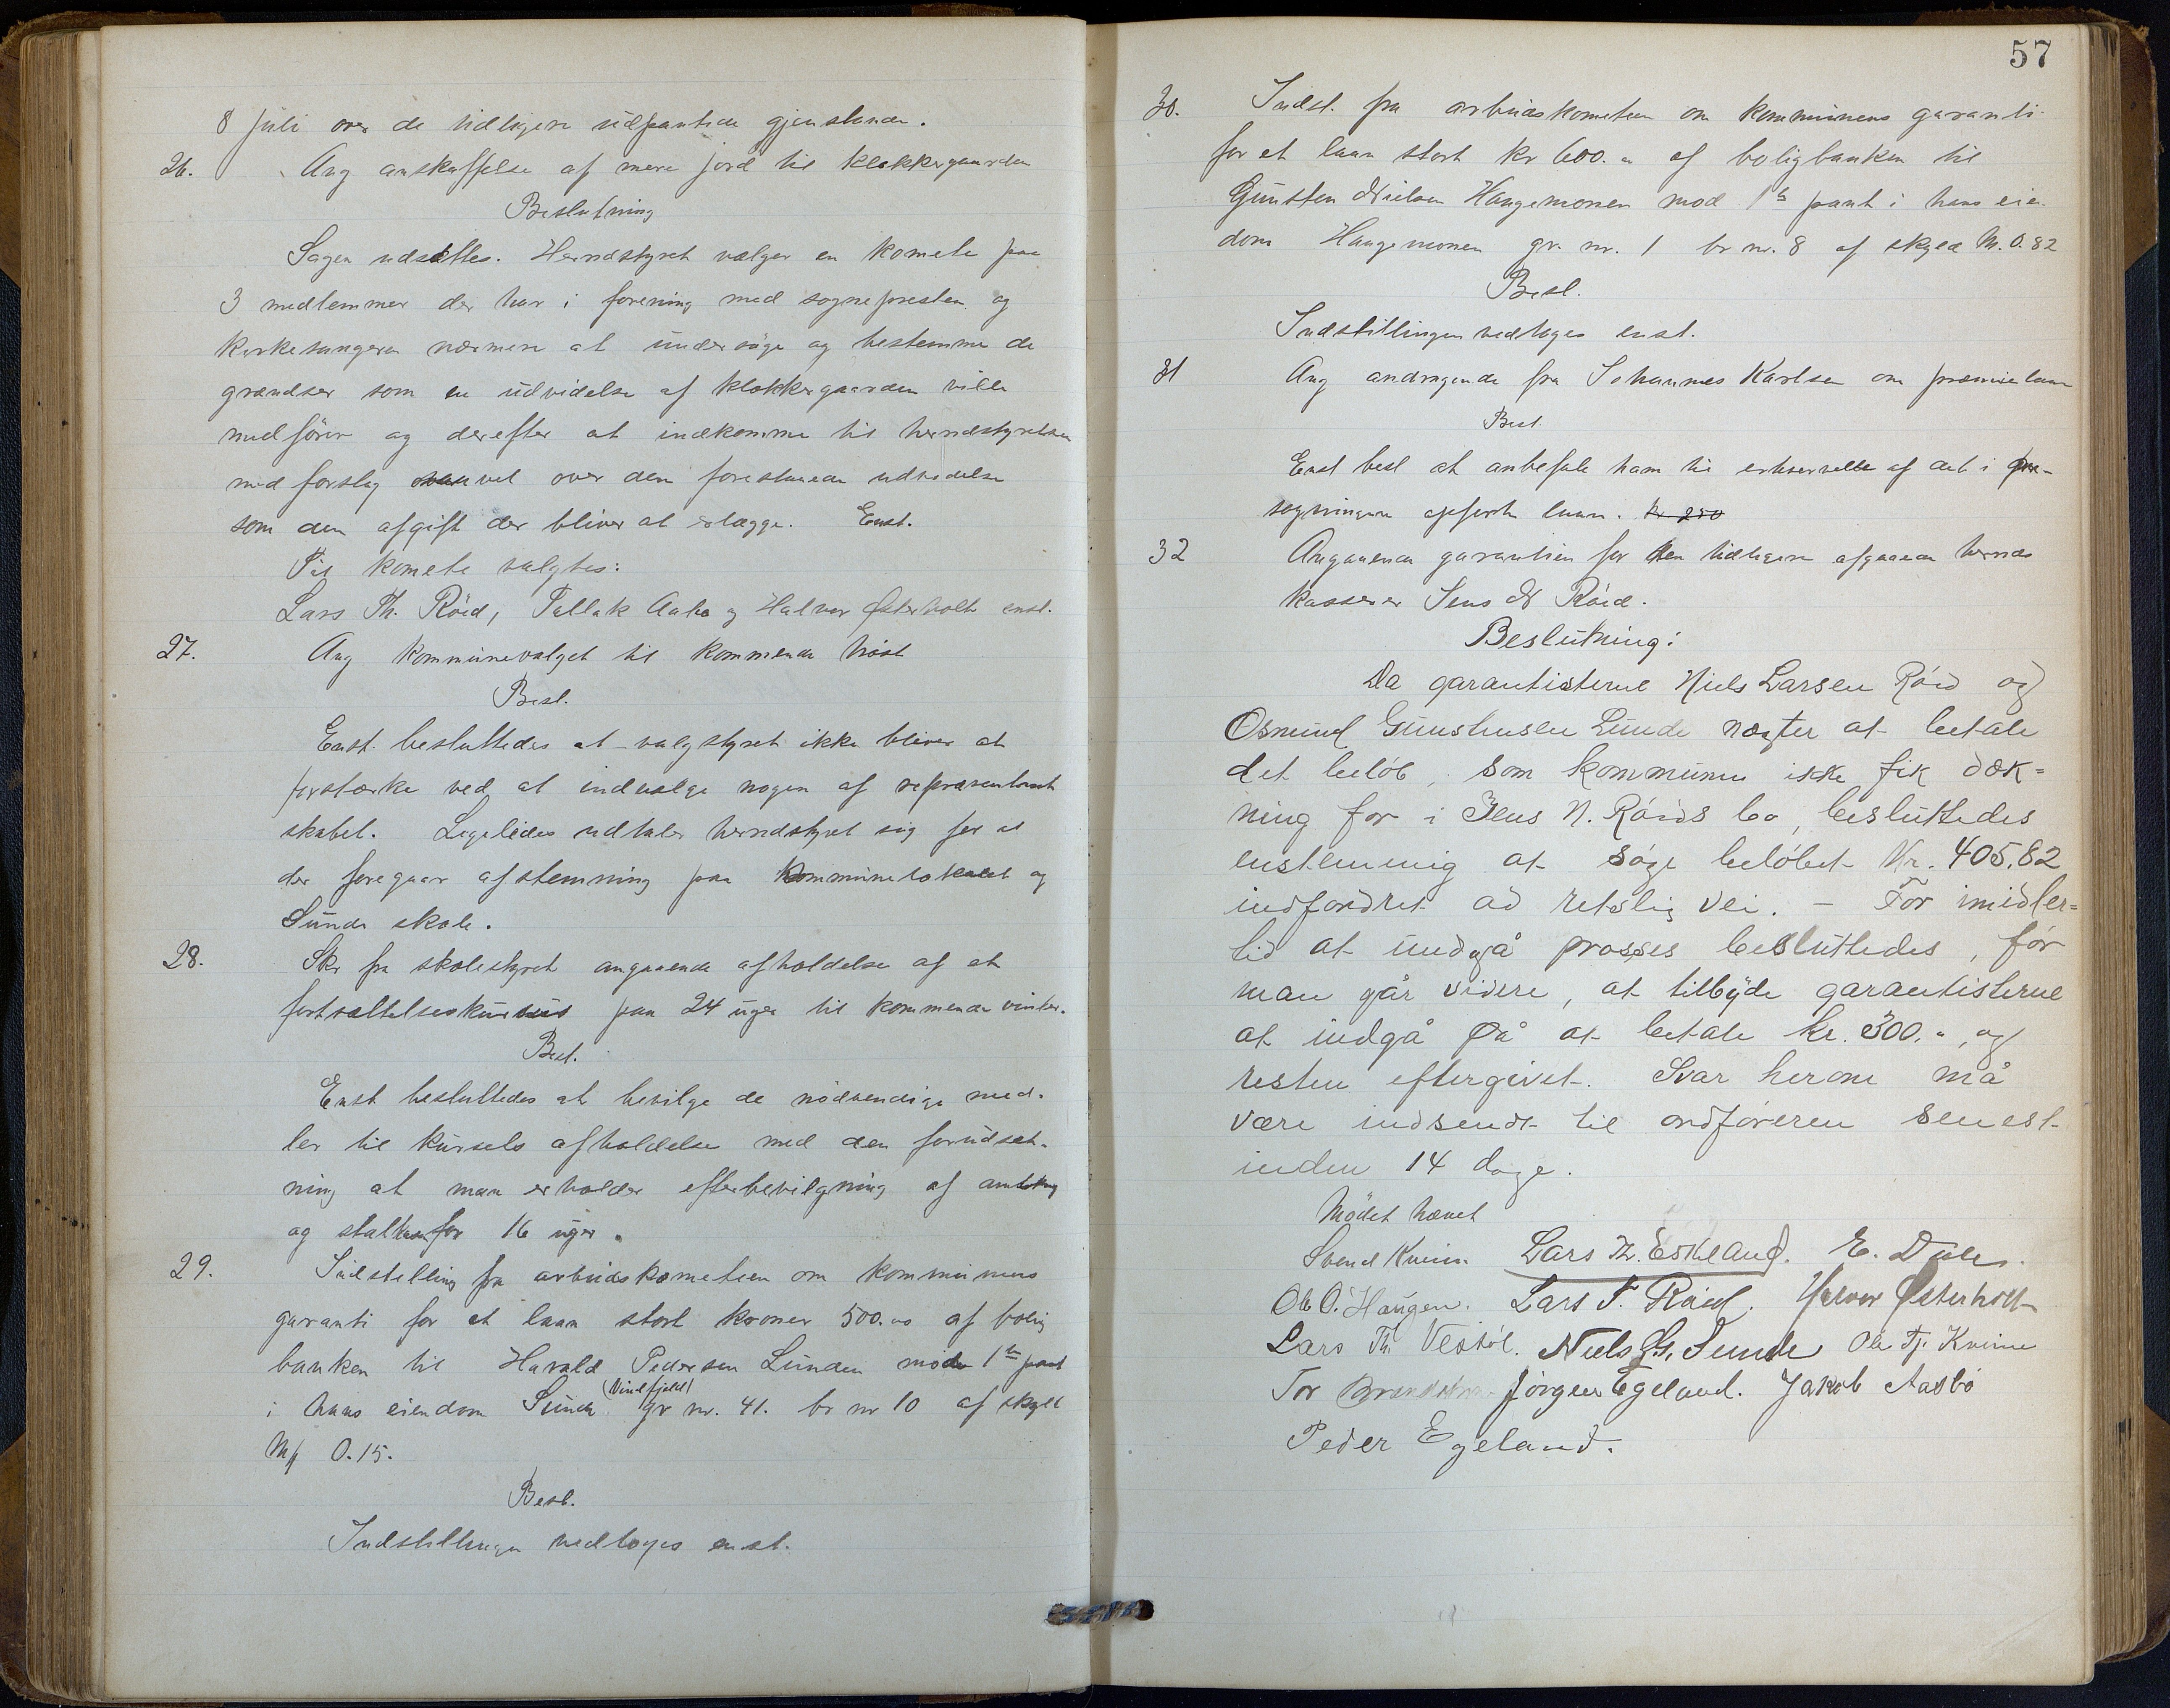 8 juli over de tidligere udpantede gjenstande.
26. Ang anskaffelse af mere jord til klokkergaarden
Beslutning
Sagen udsættes. Herredstyret vælger en komete paa
3 medlemmer der har i forening med sognepresten og
kirkesangeren nærmere at undersöge og bestemme de
grændser som en udvidelse af klokkergaarden ville
medföre og derefter at indkomme til herredstyrelsen
med forslag saavel over den forestaaende udvidelse
som den afgift der bliver at erlægge. Enst.
Til komete valgtes:
Lars Th. Röid, Tallak Aabö og Halvor Østerholt enst.
27. Ang kommunevalget til kommende höst
Besl.
Enst. besluttedes at valgstyret ikke bliver at
forstærke ved at indvælge nogen af repræsentant
skabet. Ligeledes udtaler herredstyret sig for at
der foregaar afstemning paa kommunelokalet og
Sunde skole.
28. Skr fra skolestyret angaaende afholdelse af et
fortsættelseskursus paa 24 uger til kommende vinter.
Besl.
Enst besluttedes at bevilge de nödvendige mid-
ler til kursets afholdelse med den forudsæt-
ning at man erholder efterbevilgning af amtskas
og statkassen for 16 uger.
29. Indstelling fra arbeidskometeen om kommunens
garanti for et laan stort kroner 500.00 af bolig
banken til Harald Pedersen Lunden mode 1ste pant
(Vindfjeld)
i hans eiendom Sunde gr nr. 41. br nr 10 af skyld
Mk 0.15.
Besl.
Indstillingen vedtoges enst.
57
30. Indst. fra arbeidskometeen om kommunens garanti
for et laan stort kr 600. " af boligbanken til
Gunsten Nielsen Haugemoen mod 1ste pant i hans eien
dom Haugemoen gr. nr. 1 br nr. 8 af skyld M. 0.82
Besl.
Indstillingen vedtoges enst.
31 Ang andragende fra Johannes Karlsen om præmielaan
Besl.
Enst besl at anbefale ham til erhvervelse af det i an-
sögningen opförte laan. kr 250
32 Angaaende garantien for den tidligere afgaaede herreds
kasserer Jens N Röid.
Beslutning:
Da garantisterne Niels Larsen Röid og
Osmund Gunstensen Lunde nægter at betale
det belöb, som kommunen ikke fik dæk=
ning for i Jens N. Röids bo, besluttedes
enstemmig at söge belöbet Kr. 405,82
indfordret ad retslig vei. – For imidler=
tid at undgå prosses besluttedes, för
man går videre, at tilbyde garantisterne
at indgå på at betale kr. 300. ", og
resten eftergivet. Svar herom må
være indsendt til ordföreren senest
inden 14 dage.
Mödet hævet
Svend Kvinn Lars Th. Eskeland. E. Dale.
Ole O. Haugen. Lars T. Röid. Halvor Østerholt
Lars Th Vestöl. Niels G. Sunde Ole Tj. Kvinn
Tor Jörgen Egeland. Jakob Aasbö
Peder Egeland.